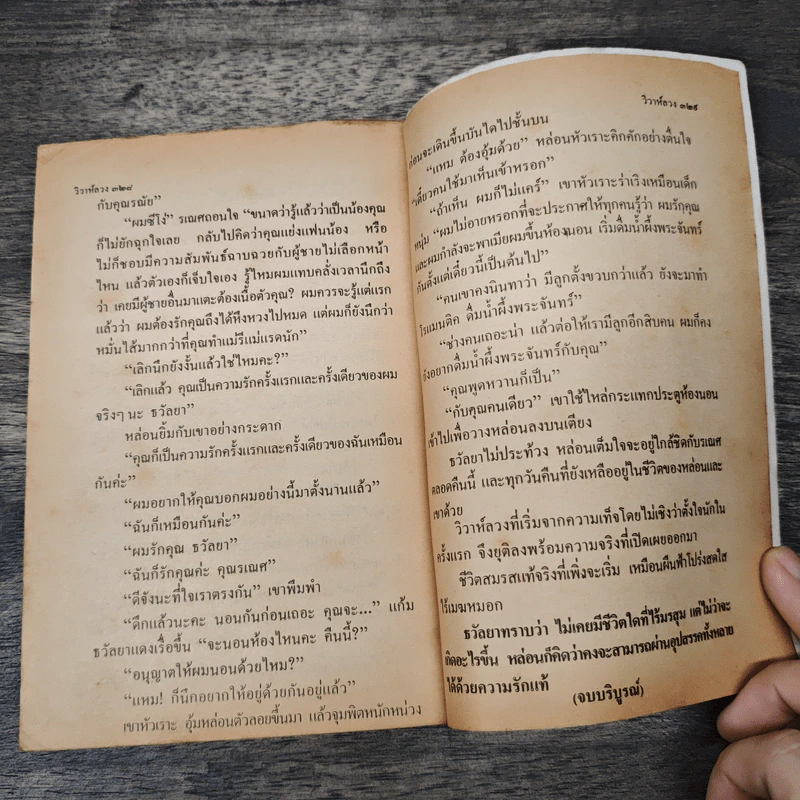 วิวาห์ลวง ๓๒๘
กับคุณรณัย”
“ผมซีโง่” รเณศถอนใจ “ขนาดว่ารู้แล้วว่าเป็นน้องคุณ
ก็ไม่ยักฉุกใจเลย กลับไปคิดว่าคุณแย่งแฟนน้อง หรือ
ไม่ก็ชอบมีความสัมพันธ์ฉาบฉวยกับผู้ชายไม่เลือกหน้า
ไหน แล้วตัวเองก็เจ็บใจเอง รู้ไหมผมแทบคลั่งเวลานึกถึง
ว่า เคยมีผู้ชายอื่นมาแตะต้องเนื้อตัวคุณ? ผมควรจะรู้แต่แรก
แล้วว่า ผมต้องรักคุณถึงได้หึงหวงไปหมด แต่ผมก็ยังนึกว่า
หมั่นไส้มากกว่าที่คุณทำแม่รีแม่แรดนัก”
“เลิกนึกยังงั้นแล้วใช่ไหมคะ?”
“เลิกแล้ว คุณเป็นความรักครั้งแรกและครั้งเดียวของผม
จริงๆ นะ ธวัลยา”
หล่อนยิ้มกับเขาอย่างกระดาก
“คุณก็เป็นความรักครั้งแรกและครั้งเดียวของฉันเหมือน
กันค่ะ”
“ผมอยากให้คุณบอกผมอย่างนี้มาตั้งนานแล้ว”
“ฉันก็เหมือนกันค่ะ”
“ผมรักคุณ ธวัลยา”
“ฉันก็รักคุณค่ะ คุณรเณศ”
“ดีจังนะที่ใจเราตรงกัน” เขาพึมพำ
“ดึกแล้วนะคะ นอนกันก่อนเถอะ คุณจะ...” แก้ม
ธวัลยาแดงเรื่อขึ้น “จะนอนห้องไหนคะ คืนนี้?”
“อนุญาตให้ผมนอนด้วยไหม?”
“แหม! ก็นึกอยากให้อยู่ด้วยกันอยู่แล้ว”
เขาหัวเราะ อุ้มหล่อนตัวลอยขึ้นมา แล้วจุมพิตหนักหน่วง
วิวาห์ลวง ๓๒๙
ก่อนจะเดินขึ้นบันไดไปชั้นบน
“แหม ต้องอุ้มด้วย” หล่อนหัวเราะคิกคักอย่างตื่นใจ
“เดี๋ยวคนใช้มาเห็นเข้าหรอก”
“ถ้าเห็น ผมก็ไม่แคร์” เขาหัวเราะร่าเริงเหมือนเด็ก
หนุ่ม “ผมไม่อายหรอกที่จะประกาศให้ทุกคนรู้ว่า ผมรักคุณ
และผมกำลังจะพาเมียผมขึ้นห้องนอน เริ่มดื่มน้ำผึ้งพระจันทร์
กันตั้งแต่เดี๋ยวนี้เป็นต้นไป”
“คนเขาคงนินทาว่า มีลูกตั้งขวบกว่าแล้ว ยังจะมาทำ
โรแมนติค ดื่มน้ำผึ้งพระจันทร์”
“ช่างคนเถอะน่า แล้วต่อให้เรามีลูกอีกสิบคน ผมก็คง
ยังอยากดื่มน้ำผึ้งพระจันทร์กับคุณ”
“คุณพูดหวานก็เป็น”
“กับคุณคนเดียว” เขาใช้ไหล่กระแทกประตูห้องนอน
เข้าไปเพื่อวางหล่อนลงบนเตียง
ธวัลยาไม่ประท้วง หล่อนเต็มใจจะอยู่ใกล้ชิดกับรเณศ
ตลอดคืนนี้ และทุกวันคืนที่ยังเหลืออยู่ในชีวิตของหล่อนและ
เขาด้วย
วิวาห์ลวงที่เริ่มจากความเท็จโดยไม่เชิงว่าตั้งใจนักใน
ครั้งแรก จึงยุติลงพร้อมความจริงที่เปิดเผยออกมา
ชีวิตสมรสแท้จริงที่เพิ่งจะเริ่ม เหมือนผืนฟ้าโปร่งสดใส
ไร้เมฆหมอก
ธวัลยาทราบว่า ไม่เคยมีชีวิตใดที่ไร้มรสุม แต่ไม่ว่าจะ
เกิดอะไรขึ้น หล่อนก็คิดว่าคงจะสามารถผ่านอุปสรรคทั้งหลาย
ได้ด้วยความรักแท้
(จบบริบูรณ์)